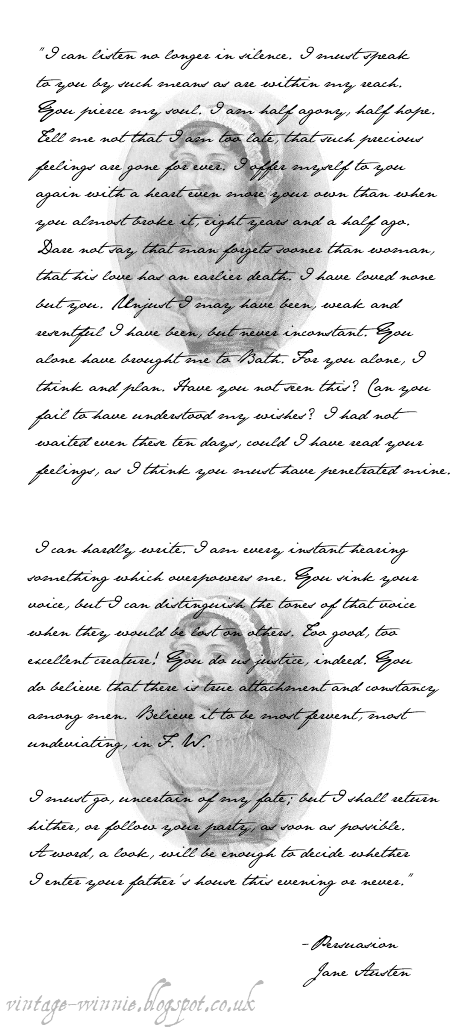 "I can listen no longer in silence. I must speak
to you by such means as are within my reach.
You pierce my soul. I am half agony, half hope.
Tell me not that I am too late, that such precious
feelings are gone for ever. I offer myself to you
again with a heart even more your own than when
you almost broke it, eight years and a half ago.
Dare not say that man forgets sooner than woman,
that his love has an earlier death. I have loved none
but you. Unjust I may have been, weak and
resentful I have been, but never inconstant. You
alone have brought me to Bath. For you alone, I
think and plan. Have you not seen this? Can you
fail to have understood my wishes? I had not
waited even these ten days, could I have read your
feelings, as I think you must have penetrated mine.
I can hardly write. I am every instant hearing
something which overpowers me. You sink your
voice, but I can distinguish the tones of that voice
when they would be lost on others. Too good, too
excellent creature! You do us justice, indeed. You
do believe that there is true attachment and constancy
among men. Believe it to be most fervent, most
undeviating, in F. W.
I must go, uncertain of my fate; but I shall return
hither, or follow your party, as soon as possible.
A word, a look, will be enough to decide whether
I enter your father's house this evening or never."
-Persuasion
Jane Austen
vintage-winnie.blogspot.co.uk